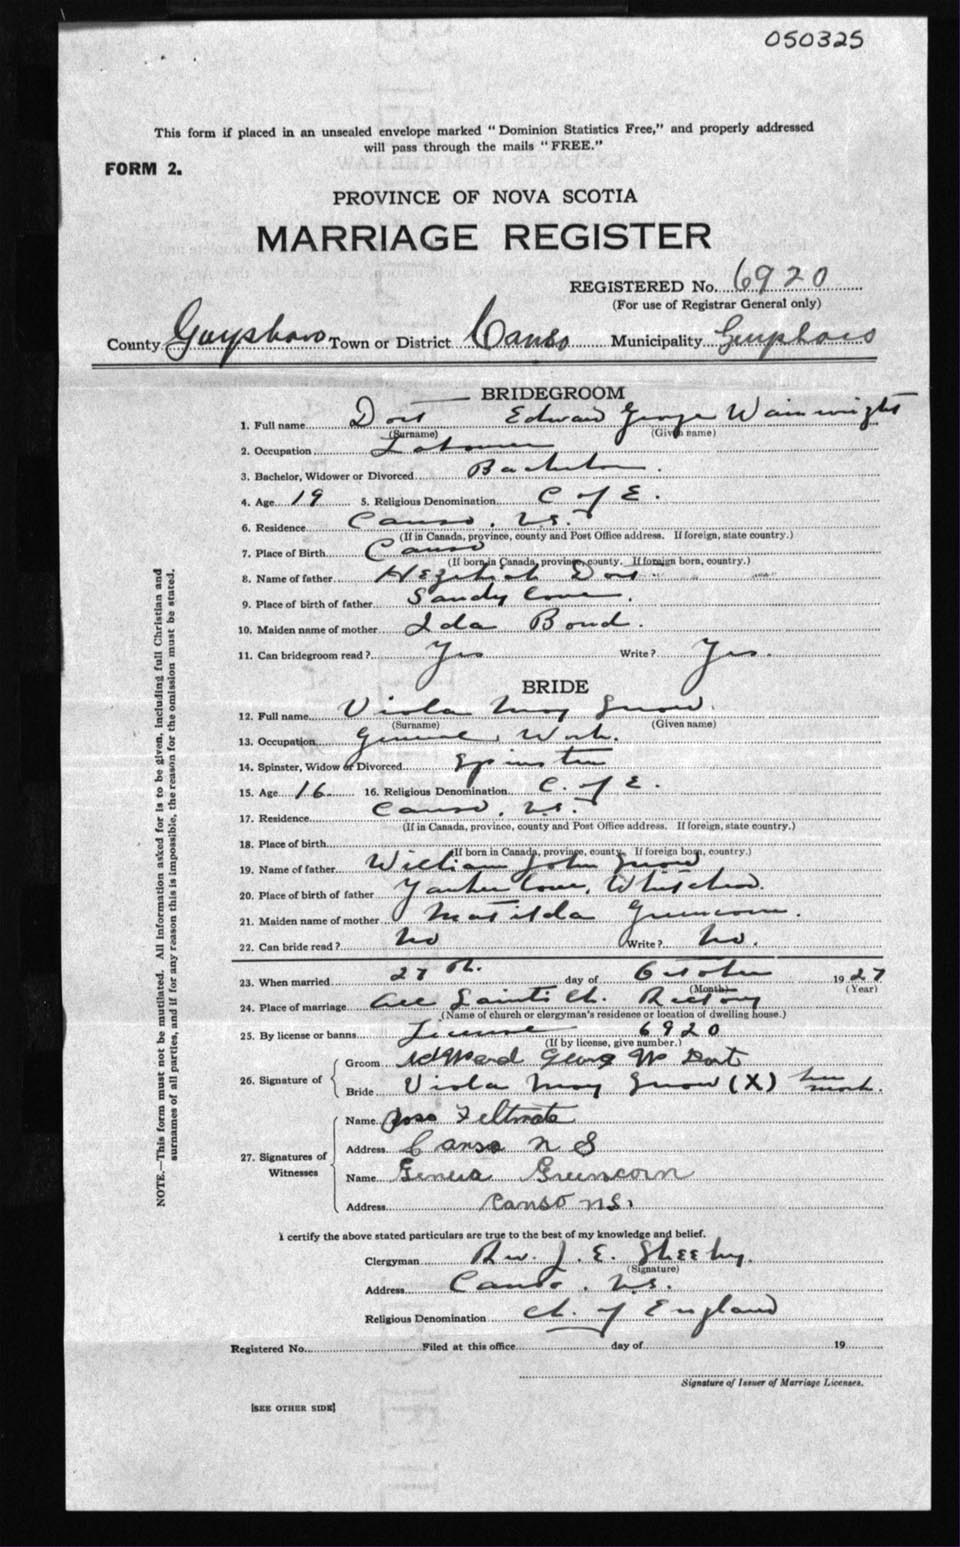 050325
This form if placed in an unsealed envelope marked "Dominion Statistics Free," and properly addressed
will pass through the mails "FREE."
FORM 2.
PROVINCE OF NOVA SCOTIA
MARRIAGE REGISTER
REGISTERED No. 6920
(For use of Registrar General only)
County Guysboro Town or District Canso Municipality Guysboro
BRIDEGROOM
1. Full name Dort Edward George Wainwright
(Surname) (Given name)
2. Occupation Labourer
3. Bachelor, Widower or Divorced Bachelor.
4. Age 19 5. Religious Denomination C of E.
6. Residence Canso, N.S.
(If in Canada, province, county and Post Office address. If foreign, state country.)
7. Place of Birth Canso
(If born in Canada, province, county. If foreign born, country.)
8. Name of father Hezekiah Dort
9. Place of birth of father Sandy Cove.
10. Maiden name of mother Ida Bond.
11. Can bridegroom read? Yes Write? Yes.
BRIDE
12. Full name Viola May Snow
(Surname) (Given name)
13. Occupation General Work.
14. Spinster, Widow or Divorced Spinster
15. Age 16 16. Religious Denomination C. of E.
17. Residence Canso, N.S.
(If in Canada, province, county and Post Office address. If foreign, state country.)
18. Place of birth
(If born in Canada, province, county. If foreign born, country.)
19. Name of father William John Snow
20. Place of birth of father Yankee Cove, Whitehead.
21. Maiden name of mother Matilda Greencorn.
22. Can bride read? No Write? No.
23. When married 27th. day of October 1927
(Month) (Year)
24. Place of marriage All Saints Ch. Rectory
(Name of church or clergyman's residence or location of dwelling house.)
25. By license or banns License 6920
(If by license, give number.)
26. Signature of
Groom Edward George W Dort
Bride Viola May Snow (X) her mark.
27. Signatures of Witnesses
Name Feltmate
Address Canso N S
Name Greencorn
Address Canso N.S.
I certify the above stated particulars are true to the best of my knowledge and belief.
Clergyman Rev. J. E. Sheehy.
(Signature)
Address Canso, N.S.
Religious Denomination Ch. of England
Registered No. Filed at this office day of 19
Signature of Issuer of Marriage Licenses.
[SEE OTHER SIDE]
NOTE.—This form must not be mutilated. All information asked for is to be given, including full Christian and
surnames of all parties, and if for any reason this is impossible, the reason for the omission must be stated.